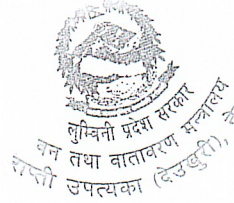 लुम्बिनी प्रदेश सरकार
वन तथा वातावरण मन्त्रालय
राप्ती उपत्यका (देउखुरी),